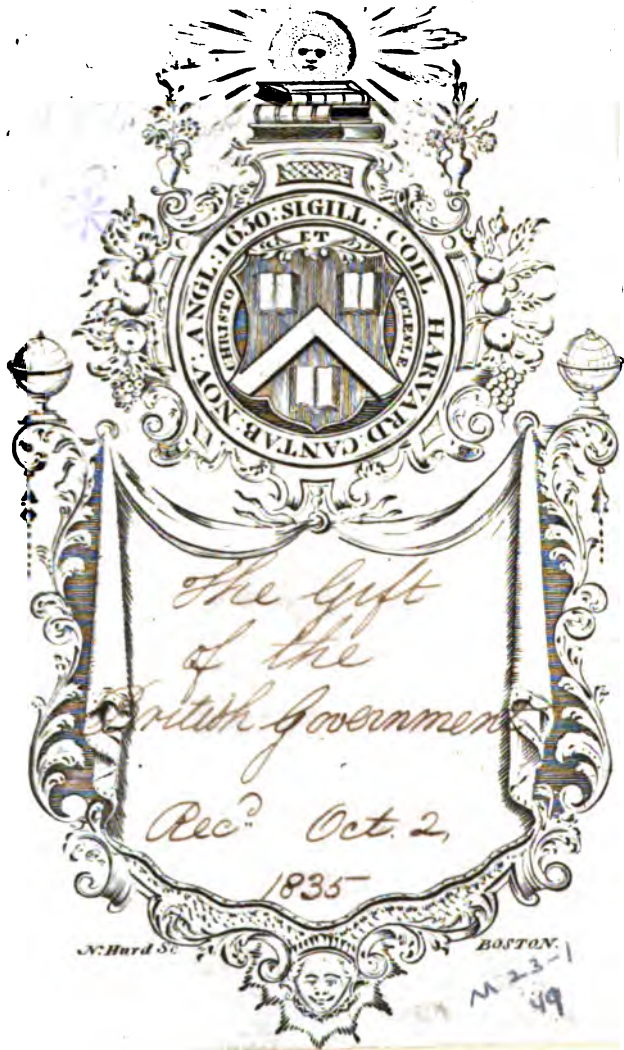 SIGILL : COLL HARVARD : CANTAB : NOV : ANGL : 1650 :
CHRISTO ET ECCLESIÆ
The Gift
of the
British Government
Rec.d Oct. 2,
1835
N. Hurd Sc
BOSTON.
M 23-1
49